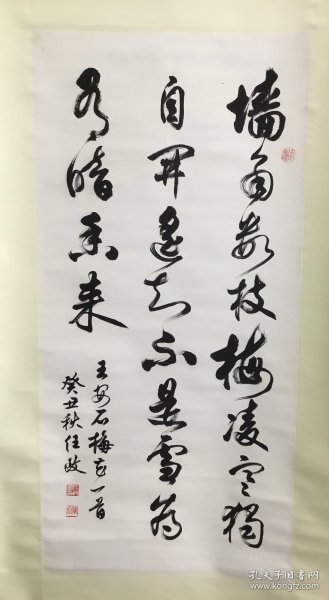 墙角数枝梅凌寒独
自开遥知不是雪为
有暗香来
王安石梅花一首
癸丑秋任政
孔夫子旧书网
www.kongfz.com